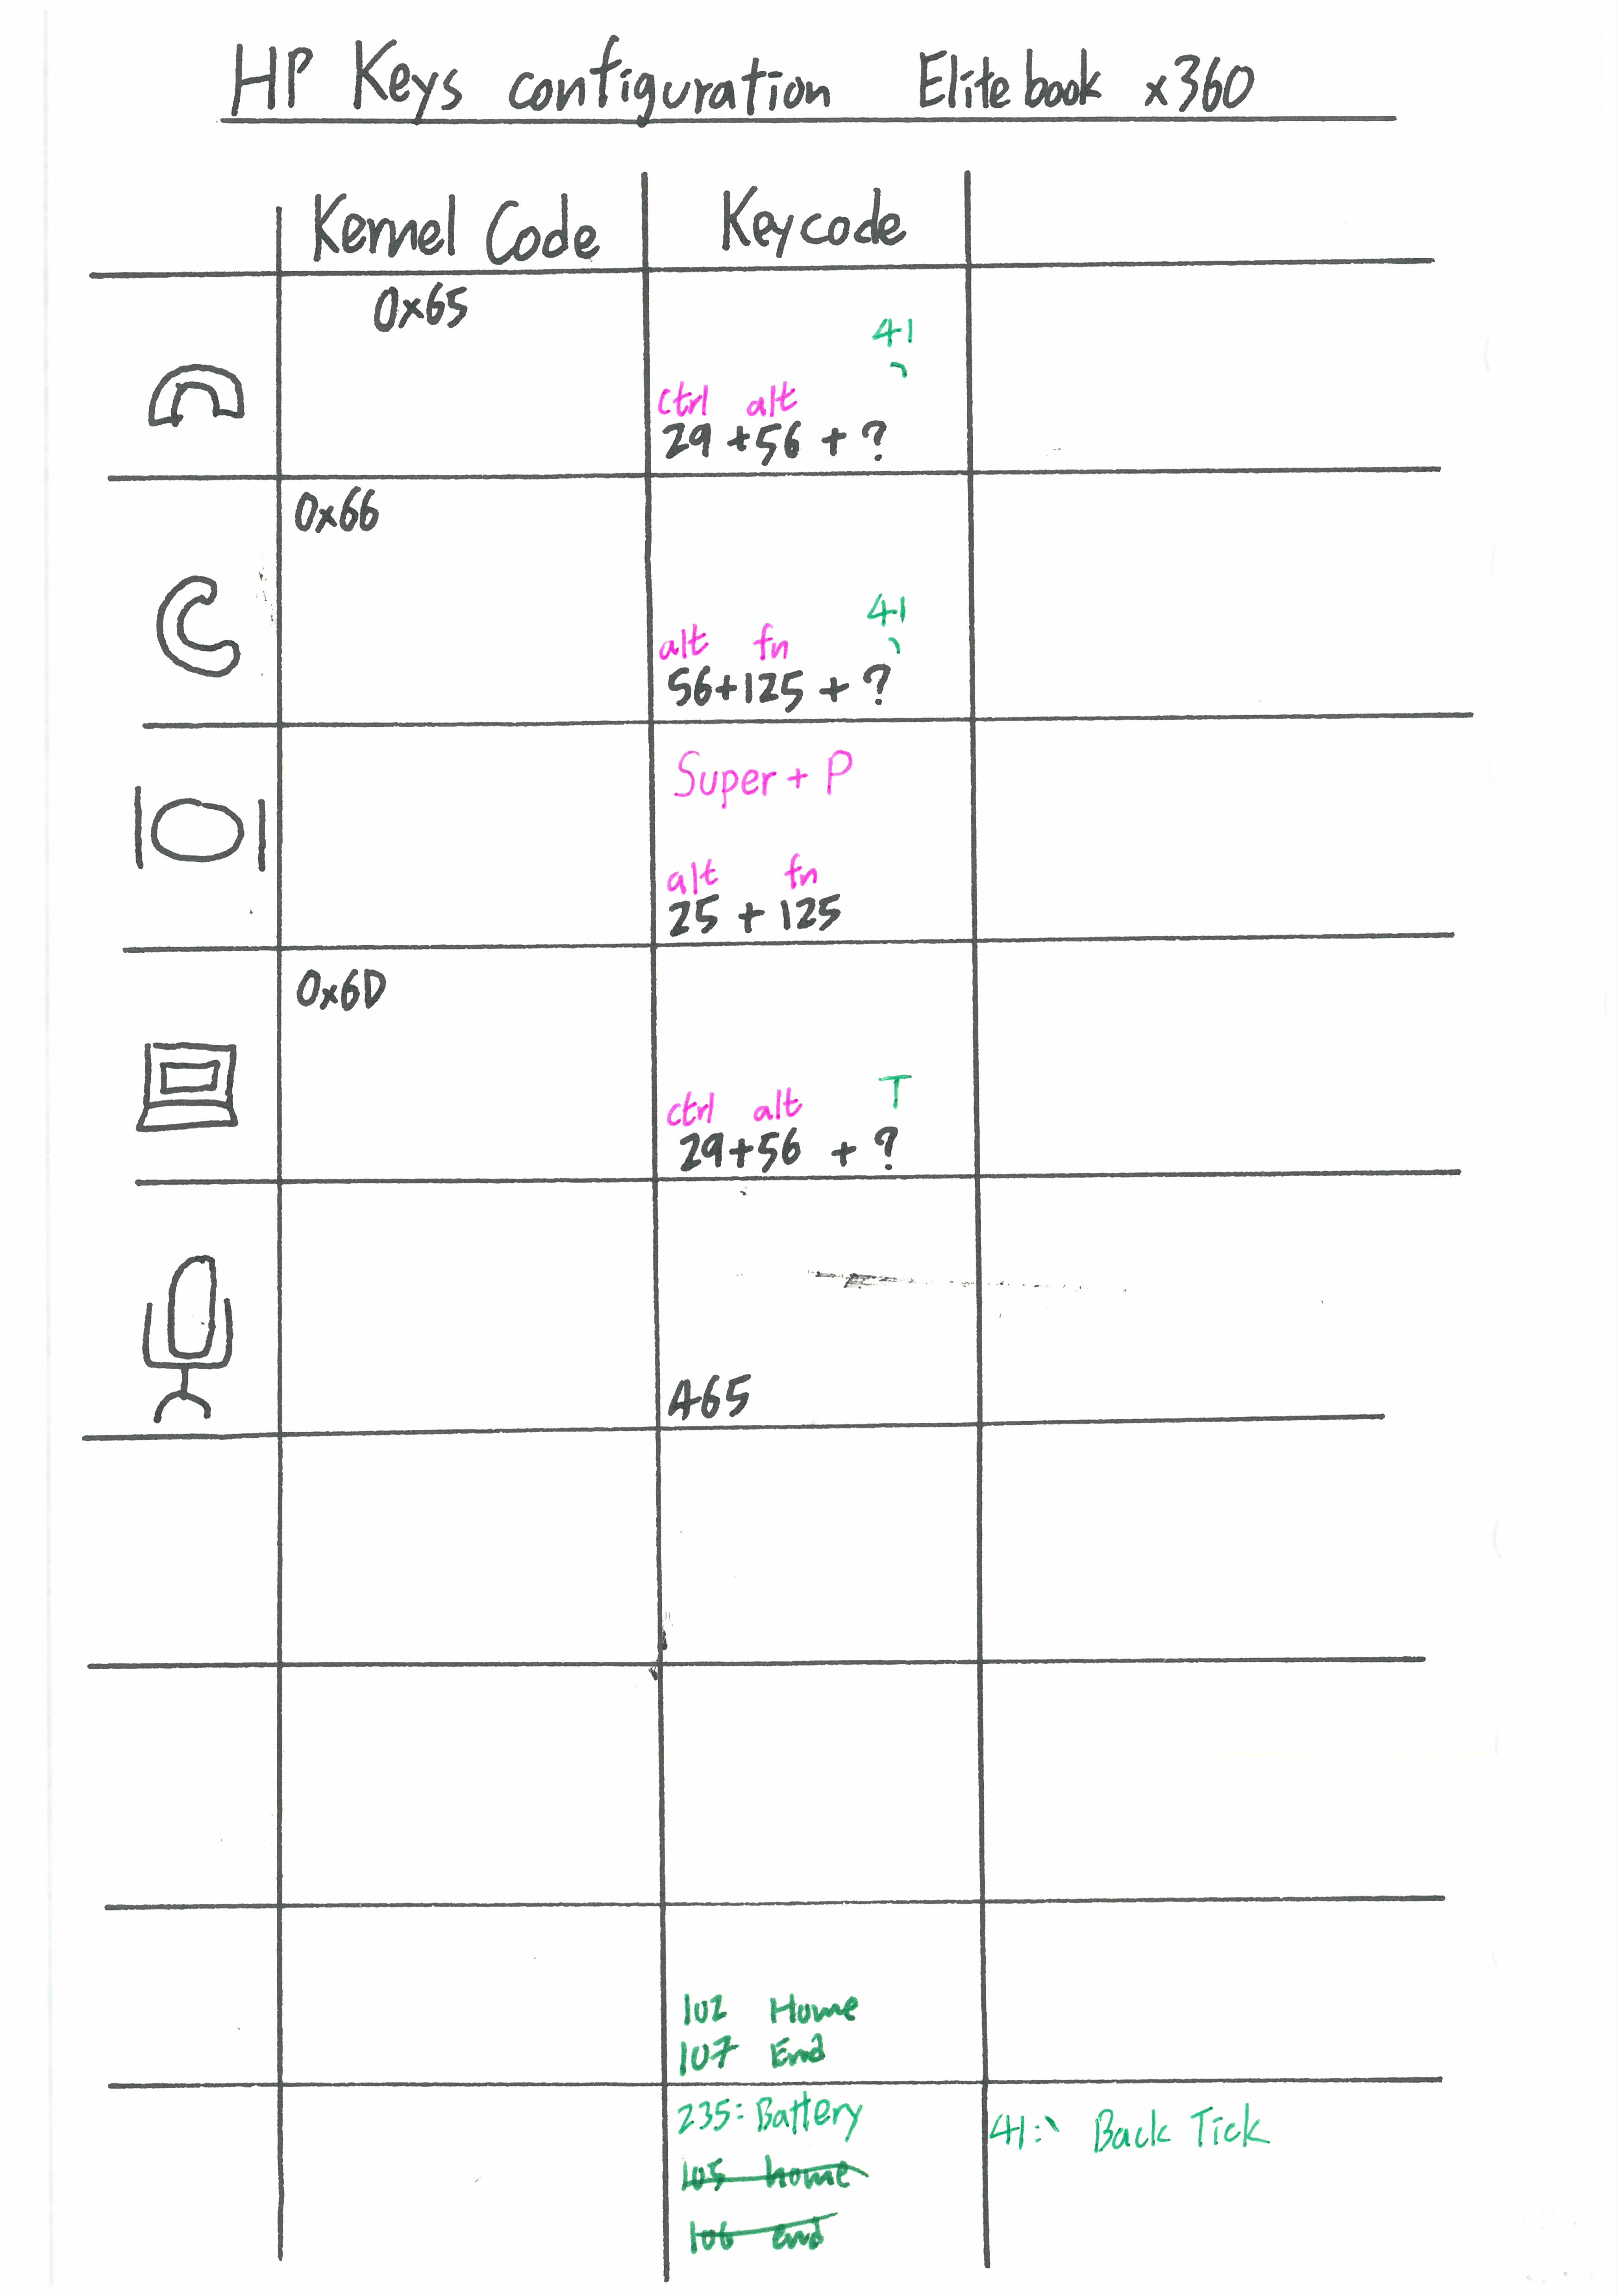 HP Keys configuration Elitebook x360
Kernel Code Keycode
0x65
41
`
ctrl alt
29 + 56 + ?
0x66
41
`
alt fn
56 + 125 + ?
Super + P
alt fn
25 + 125
0x6D
T
ctrl alt
29 + 56 + ?
465
102 Home
107 End
235: Battery
41: ` Back Tick
105 home
106 End